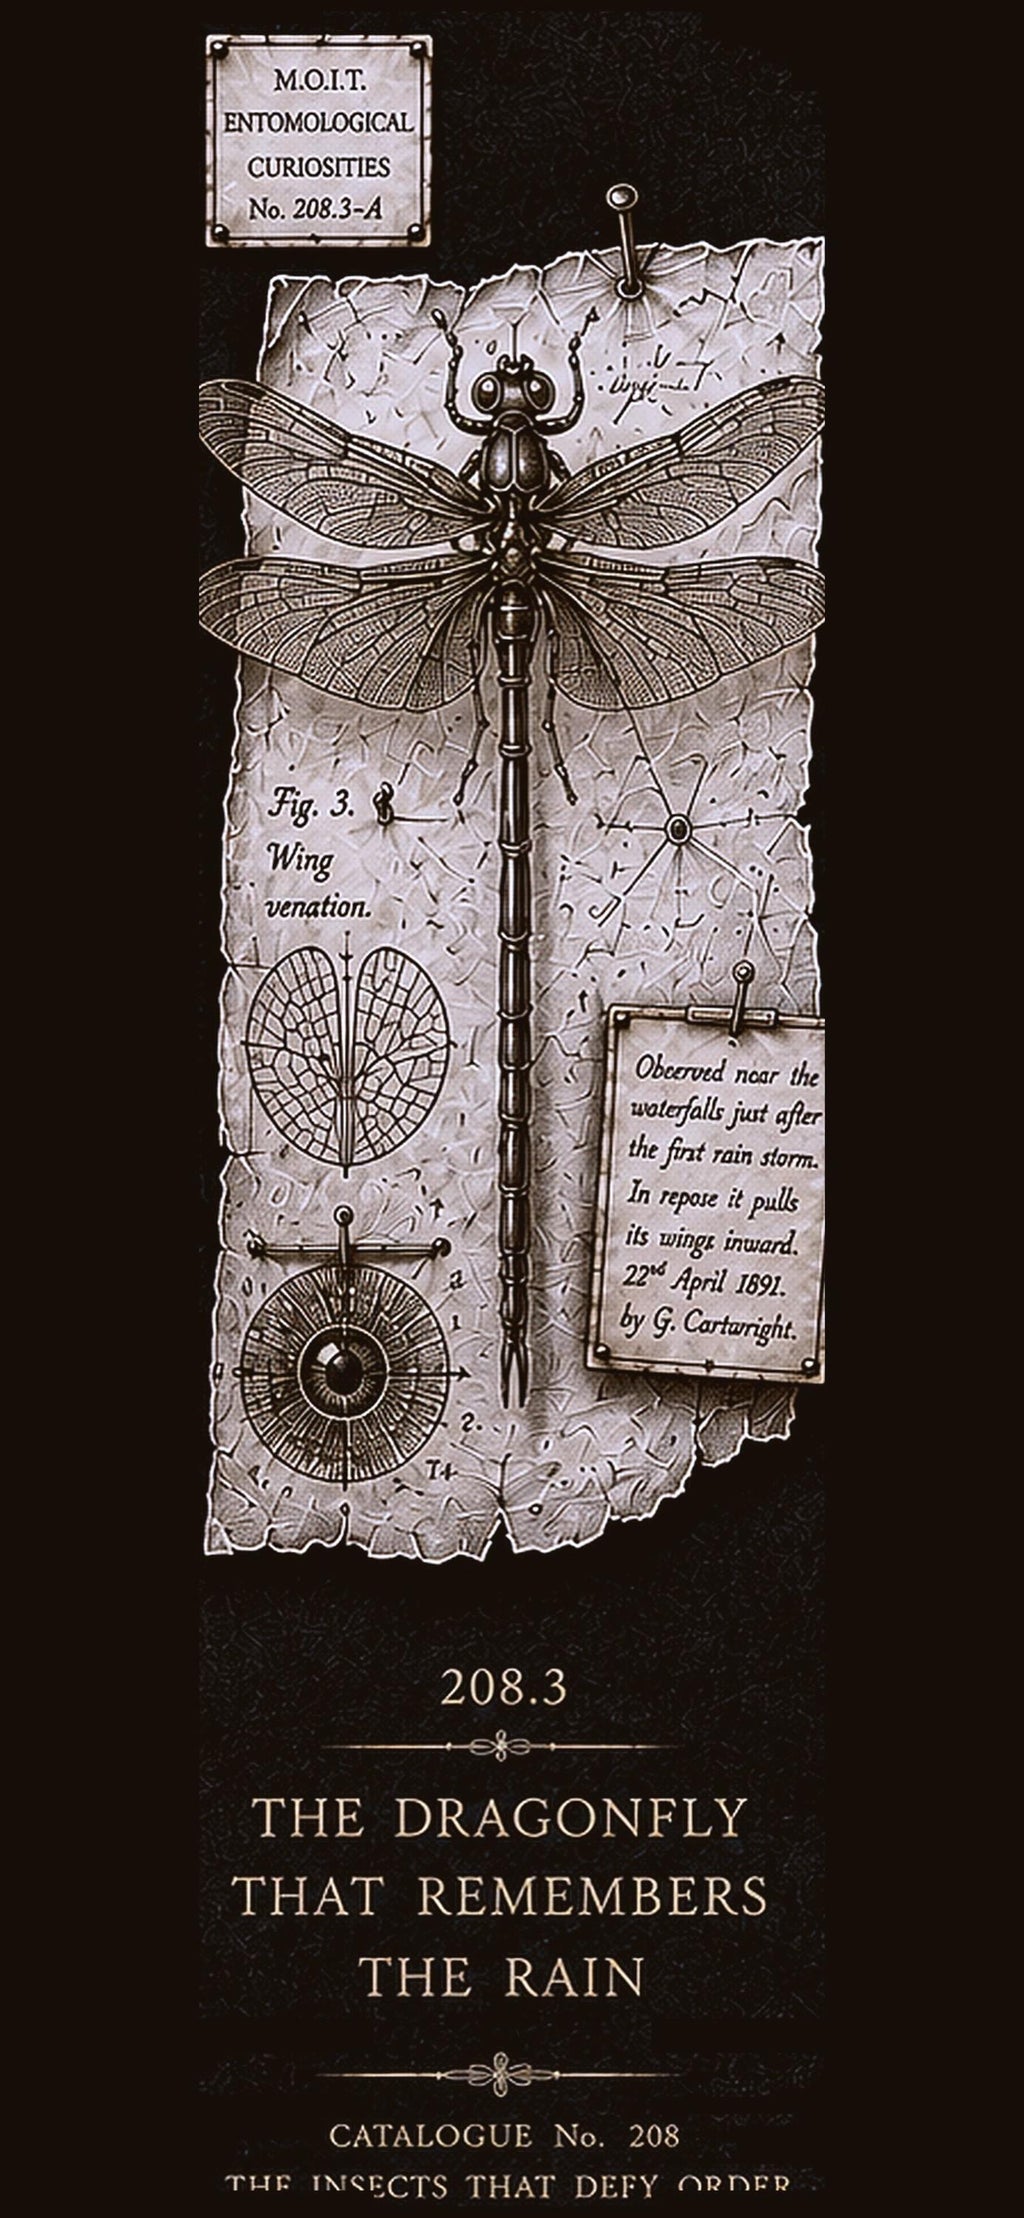 M.O.I.T.
ENTOMOLOGICAL
CURIOSITIES
No. 208.3-A
Fig. 3.
Wing
venation.
Observed near the
waterfalls just after
the first rain storm.
In repose it pulls
its wings inward.
22nd April 1891.
by G. Cartwright.
2
1
2.
208.3
THE DRAGONFLY
THAT REMEMBERS
THE RAIN
CATALOGUE No. 208
THE INSECTS THAT DEFY ORDER